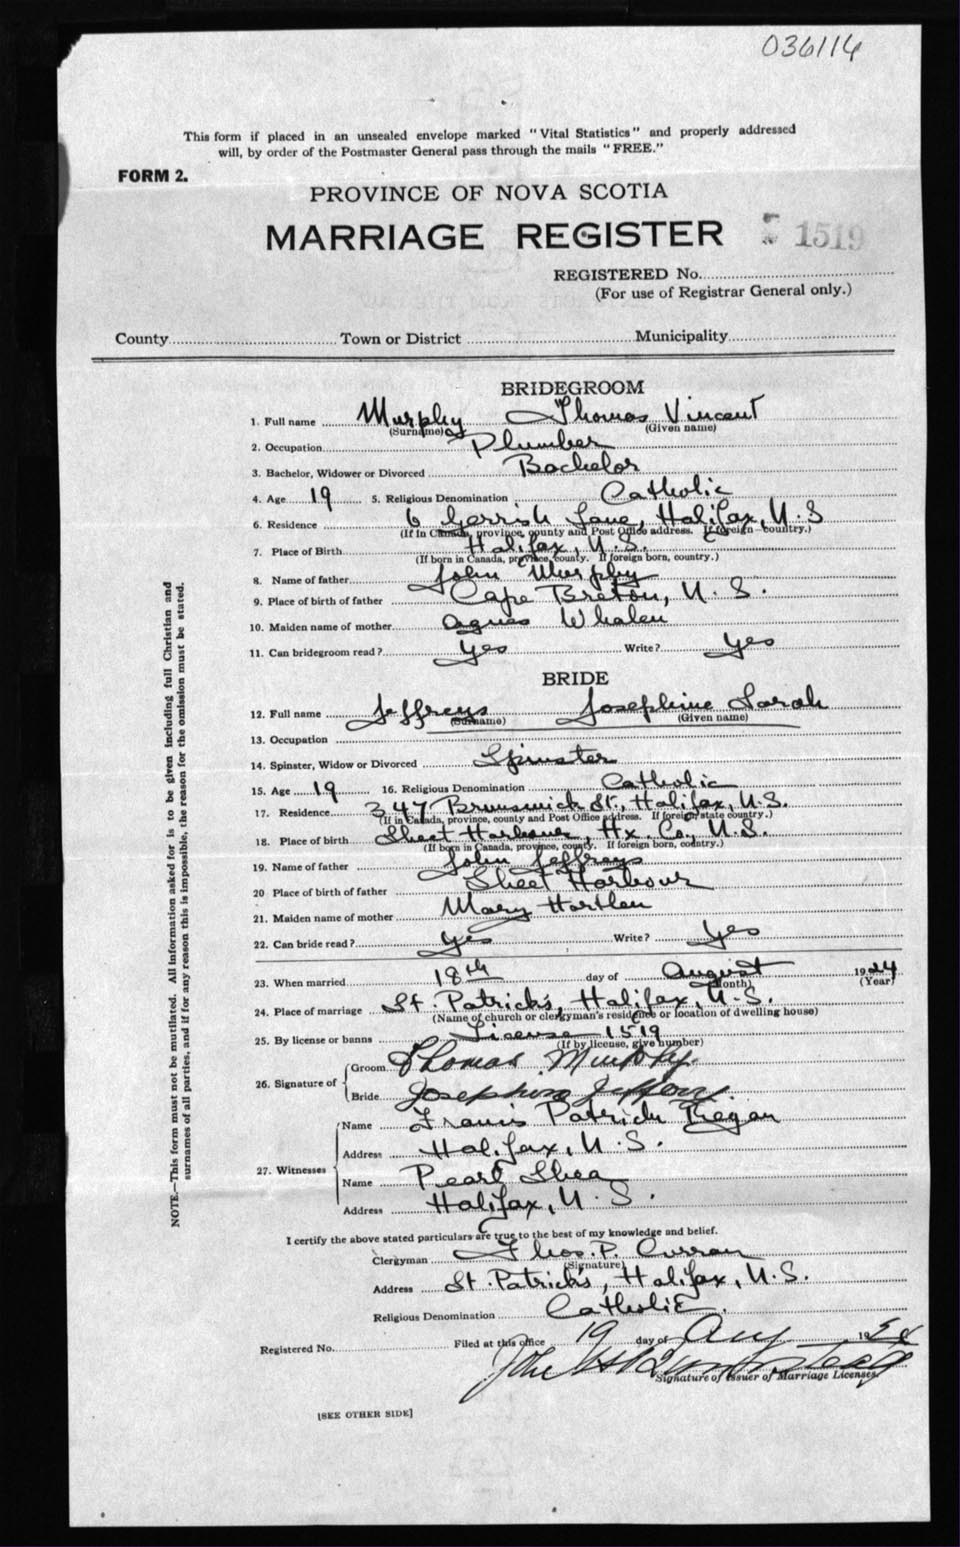 036114
This form if placed in an unsealed envelope marked "Vital Statistics" and properly addressed
will, by order of the Postmaster General pass through the mails "FREE."
FORM 2.
PROVINCE OF NOVA SCOTIA
MARRIAGE REGISTER 1519
REGISTERED No.
(For use of Registrar General only.)
County Town or District Municipality
BRIDEGROOM
1. Full name Murphy Thomas Vincent
(Surname) (Given name)
2. Occupation Plumber
3. Bachelor, Widower or Divorced Bachelor
4. Age 19 5. Religious Denomination Catholic
6. Residence 6 Gerrish Lane, Halifax, N.S
(If in Canada, province, county and Post Office address. If foreign—country.)
7. Place of Birth Halifax, N.S.
(If born in Canada, province, county. If foreign born, country.)
8. Name of father John Murphy
9. Place of birth of father Cape Breton, N.S.
10. Maiden name of mother Agnes Whalen
11. Can bridegroom read? Yes Write? Yes
BRIDE
12. Full name Jeffreys Josephine Sarah
(Surname) (Given name)
13. Occupation
14. Spinster, Widow or Divorced Spinster
15. Age 19 16. Religious Denomination Catholic
17. Residence 347 Brunswick St., Halifax, N.S.
(If in Canada, province, county and Post Office address. If foreign state country.)
18. Place of birth Sheet Harbour, Hx. Co., N.S.
(If born in Canada, province, county. If foreign born, country.)
19. Name of father John Jeffreys
20 Place of birth of father Sheet Harbour
21. Maiden name of mother Mary Hartlen
22. Can bride read? Yes Write? Yes
23. When married 18th day of August 1924
(Month) (Year)
24. Place of marriage St. Patrick's, Halifax, N.S.
(Name of church or clergyman's residence or location of dwelling house)
25. By license or banns License 1519
(If by license, give number)
26. Signature of Groom Thomas Murphy
Bride Josephine
27. Witnesses
Name Francis Patrick Regan
Address Halifax, N.S.
Name Pearl Shea
Address Halifax, N.S.
I certify the above stated particulars are true to the best of my knowledge and belief.
Clergyman Thos. P. Curran
(Signature)
Address St. Patrick's, Halifax, N.S.
Religious Denomination Catholic.
Registered No. Filed at this office 19 day of Aug 19
Signature of Issuer of Marriage Licenses.
[SEE OTHER SIDE]
NOTE.—This form must not be mutilated. All information asked for is to be given including full Christian and
surnames of all parties, and if for any reason this is impossible, the reason for the omission must be stated.